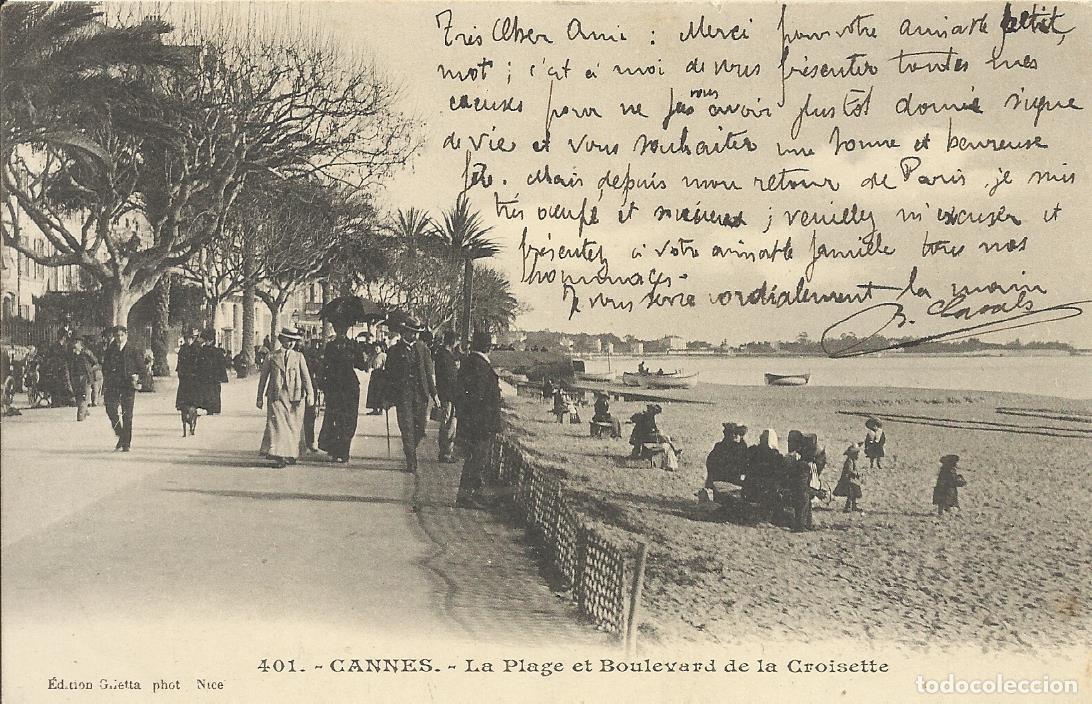 Très Cher Ami : Merci pour votre aimable petit
mot ; c'est à moi de vous présenter toutes mes
excuses pour ne pas vous avoir plus tôt donné signe
de vie et vous souhaiter une bonne et heureuse
fête. Mais depuis mon retour de Paris, je suis
très occupé et ; veuillez m'excuser et
présentez à votre aimable famille tous nos
hommages.
Je vous serre cordialement la main
401. - CANNES. - La Plage et Boulevard de la Croisette
Édition Giletta phot Nice
todocoleccion